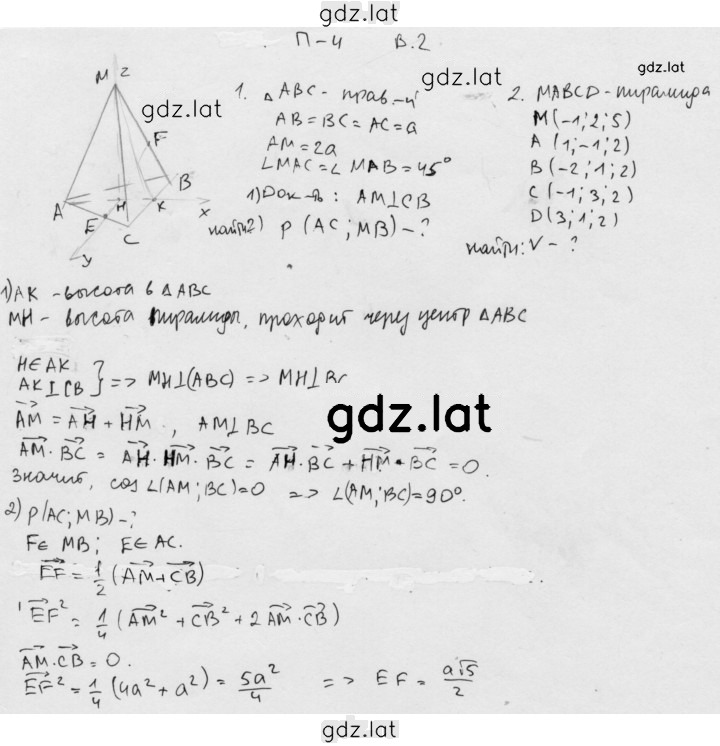 gdz.lat
П-4 В.2
gdz.lat
gdz.lat
gdz.lat
M z
F
A
H
B
K
x
E
C
y
1. △ABC - прав-й
AB=BC=AC=a
AM=2a
∠MAC=∠MAB=45°
1) Док-ть: AM⊥CB
найти 2) ρ(AC;MB)-?
2. MABCD-пирамида
M(-1;2;5)
A(1;-1;2)
B(-2;1;2)
C(-1;3;2)
D(3;1;2)
найти: V-?
1) AK - высота в △ABC
MH - высота пирамиды, проходит через центр △ABC
H∈AK
AK⊥CB } => MH⊥(ABC) => MH⊥BC
gdz.lat
AM = AH + HM, AM⊥BC
AM·BC = AH·HM·BC = AH·BC + HM·BC = 0.
Значит, cos∠(AM;BC)=0 => ∠(AM;BC)=90°.
2) ρ(AC;MB)-?
F∈MB; E∈AC.
EF = 1/2 (AM+CB)
EF² = 1/4 (AM² + CB² + 2AM·CB)
AM·CB=0.
EF² = 1/4 (4a²+a²) = 5a²/4 => EF = a√5/2
gdz.lat